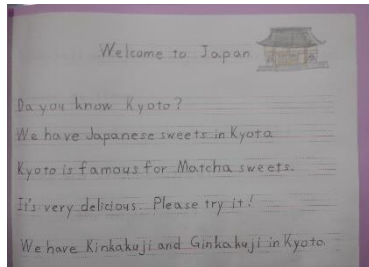 Welcome to Japan
Do you know Kyoto?
We have Japanese sweets in Kyoto
Kyoto is famous for Matcha sweets.
It's very delicious. Please try it!
We have Kinkakuji and Ginkakuji in Kyoto